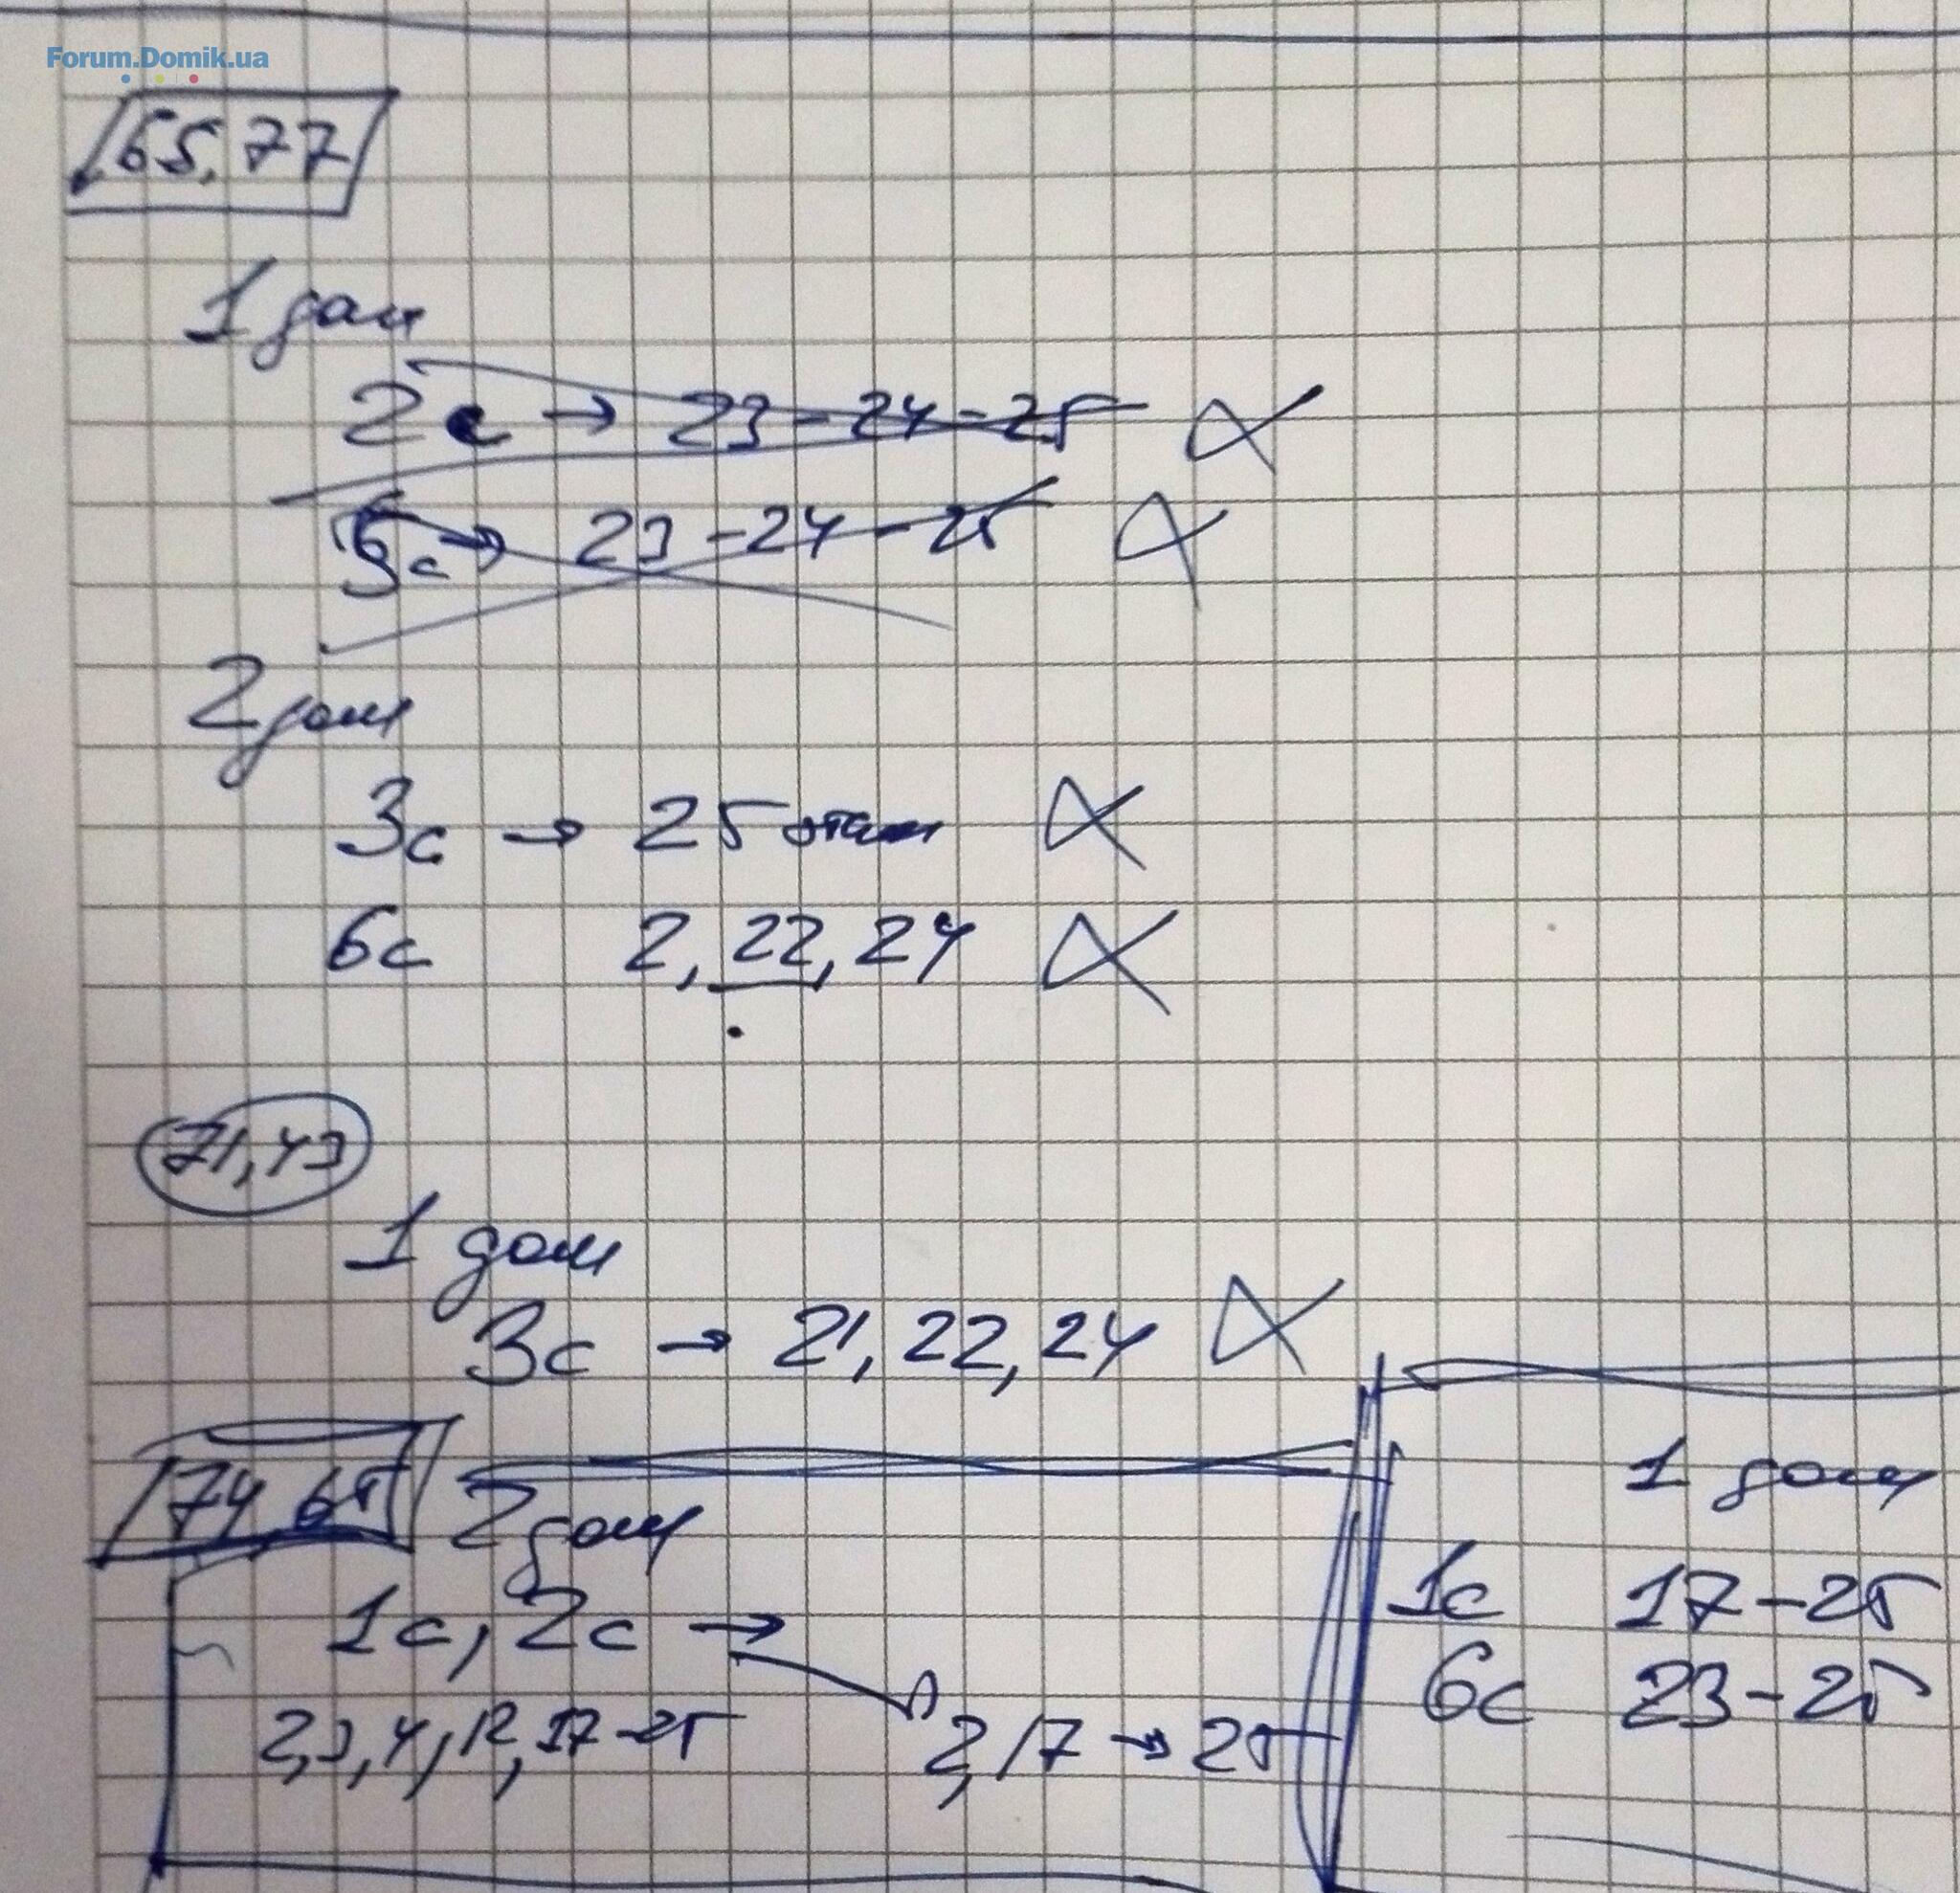 Forum.Domik.ua
65,77
1 дом
2с → 23-24-25
с → 23-24-25
2 дом
3с → 25 этаж
6с 2, 22, 24
71,43
1 дом
3с → 21, 22, 24
74 65
2 дом
1с, 2с →
2,3,4,12,17-25
2,17 → 25
1 дом
1с 17-25
6с 23-25